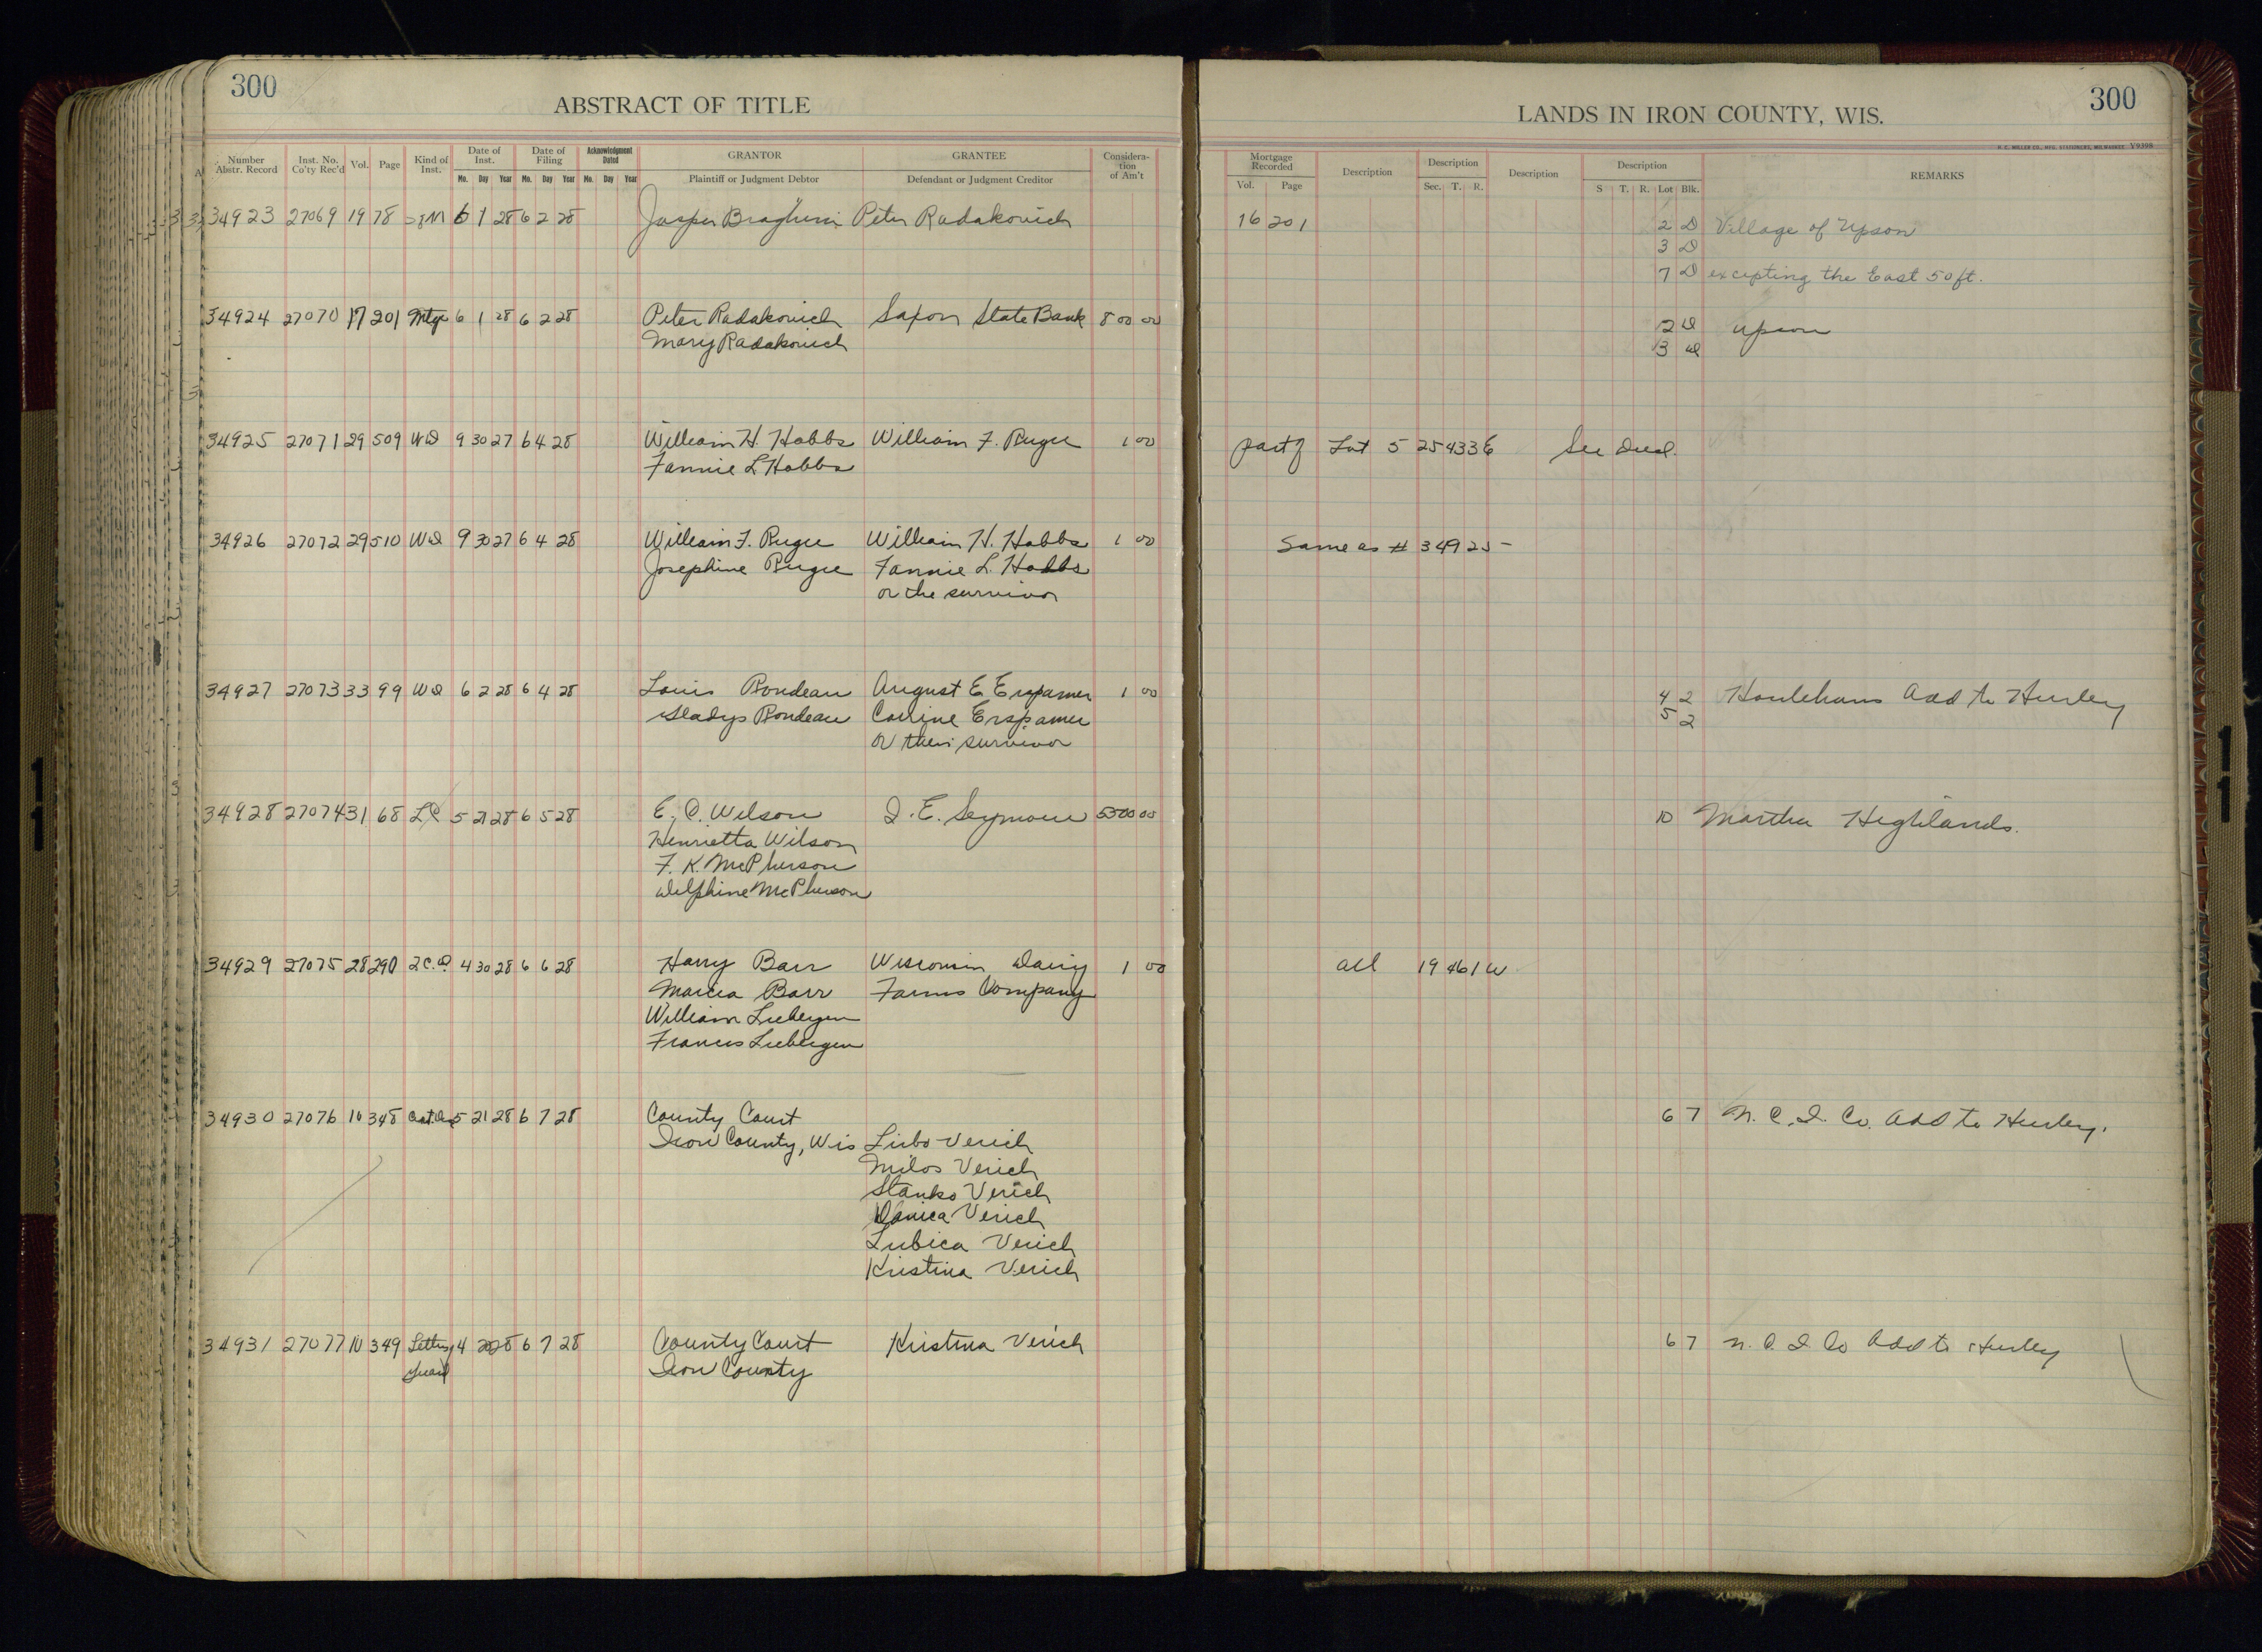 300
ABSTRACT OF TITLE
Number Abstr. Record Inst. No. Co'ty Rec'd Vol. Page Kind of Inst. Date of Inst. Mo. Day Year Date of Filing Mo. Day Year Acknowledgment Dated Mo. Day Year GRANTOR Plaintiff or Judgment Debtor GRANTEE Defendant or Judgment Creditor Considera-tion of Am't
34923 27069 19 78 6 1 28 6 2 28 Jasper Peter Radakovich
34924 27070 17 201 Mtge 6 1 28 6 2 28 Peter Radakovich Saxon State Bank 800 00
Mary Radakovich
34925 27071 29 509 WD 9 30 27 6 4 28 William H. Hobbs William F. Rugee 1 00
Fannie L Hobbs
34926 27072 29 510 WD 9 30 27 6 4 28 William F. Rugee William H. Hobbs 1 00
Josephine Rugee Fannie L. Hobbs
or the survivor
34927 27073 33 99 WD 6 2 28 6 4 28 Louis Rondeau August E Erspamer 1 00
Gladys Rondeau Corrine Erspamer
or their survivor
34928 27074 31 68 LC 5 21 28 6 5 28 E. C. Wilson D. E. Seymour 5500 00
Henrietta Wilson
F. K. McPherson
Delphine McPherson
34929 27075 28 290 2 C. D. 4 30 28 6 6 28 Harry Barr Wisconsin Dairy 1 00
Marcia Barr Farms Company
William Liebergen
Francis Liebergen
34930 27076 10 348 5 21 28 6 7 28 County Court
Iron County, Wis Liubo Verich
Milos Verich
Stanko Verich
Danica Verich
Lubica Verich
Kristina Verich
34931 27077 10 349 Letters 4 28 6 7 28 County Court Kristina Verich
Guard Iron County
LANDS IN IRON COUNTY, WIS.
300
H. C. MILLER CO., MFG. STATIONERS, MILWAUKEE Y9398
Mortgage Recorded Vol. Page Description Description Sec. T. R. Description Description S T. R. Lot Blk. REMARKS
16 201 2 D Village of Upson
3 D
7 D excepting the East 50 ft.
2 D Upson
3 D
part of Lot 5 25 43 3 E See Deed.
Same as # 34925
4 2 Houlehans Add to Hurley
5 2
10 Martha Highlands.
all 19 46 1 W
6 7 N. C. I. Co. Add to Hurley.
6 7 N. C. I. Co Add to Hurley